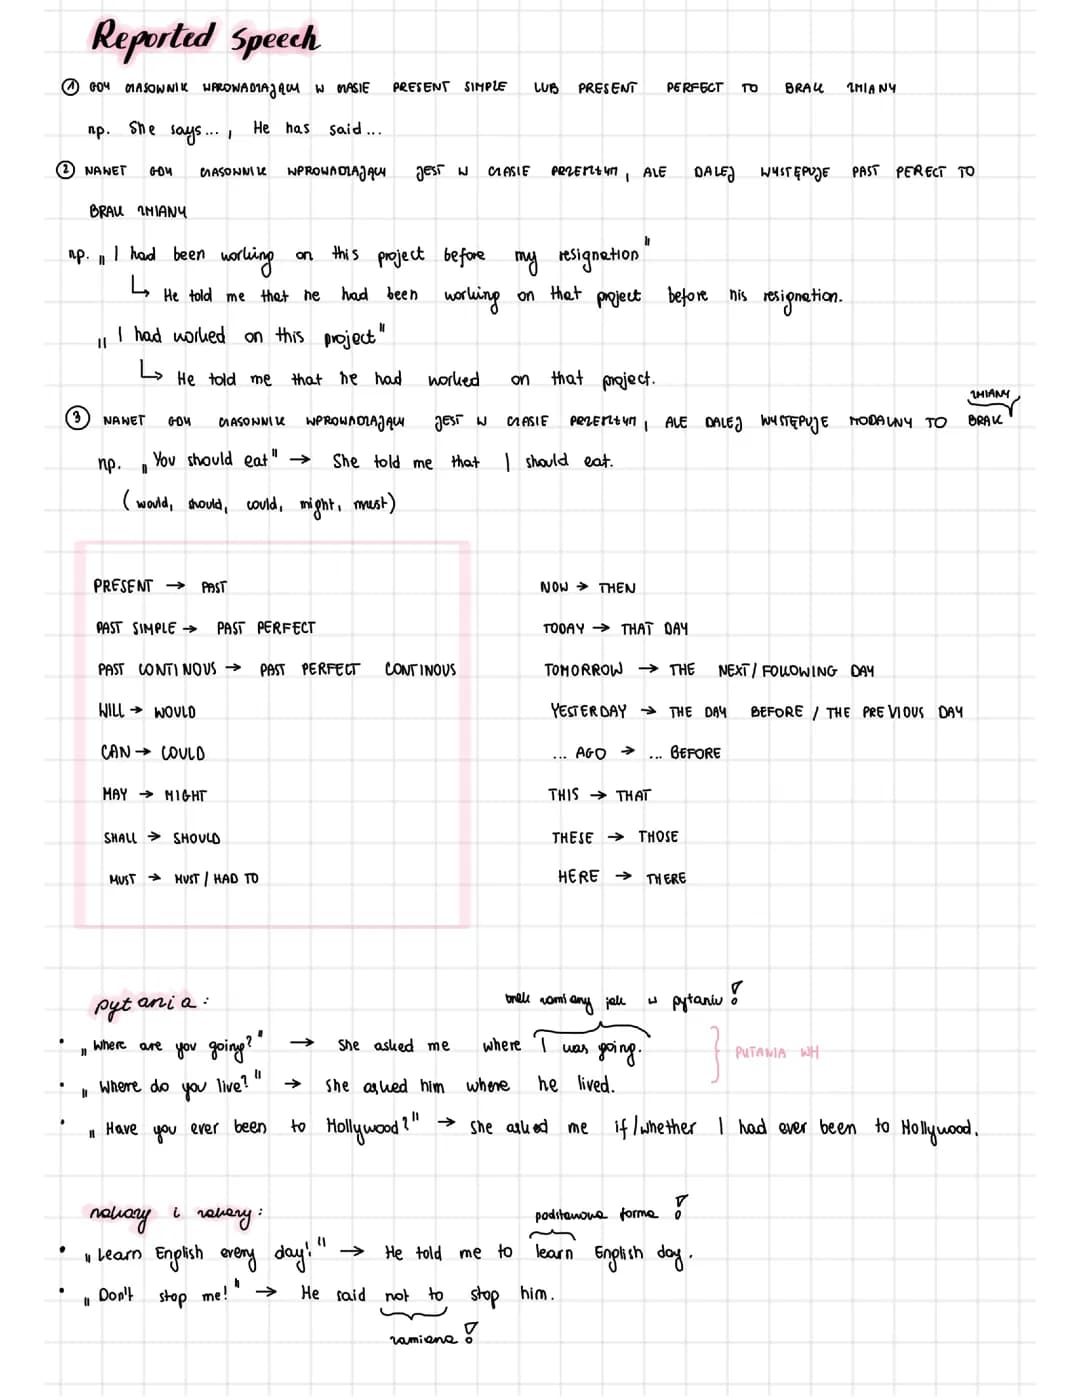 Reported Speech
① GDY CZASOWNIK WPROWADZAJĄCY W CZASIE PRESENT SIMPLE LUB PRESENT PERFECT TO BRAK ZMIANY
np. She says..., He has said...
② NAWET GDY CZASOWNIK WPROWADZAJĄCY JEST W CZASIE PRZESZŁYM, ALE DALEJ WYSTĘPUJE PAST PERECT TO
BRAK ZMIANY
np. „I had been working on this project before my resignation"
↳ He told me that he had been working on that project before his resignation.
„I had worked on this project"
↳ He told me that he had worked on that project.
ZMIANY
③ NAWET GDY CZASOWNIK WPROWADZAJĄCY JEST W CZASIE PRZESZŁYM, ALE DALEJ WYSTĘPUJE MODALNY TO BRAK
np. „You should eat" → She told me that I should eat.
(would, should, could, might, must)
PRESENT → PAST
PAST SIMPLE → PAST PERFECT
PAST CONTINOUS → PAST PERFECT CONTINOUS
WILL → WOULD
CAN → COULD
MAY → MIGHT
SHALL → SHOULD
MUST → MUST / HAD TO
NOW → THEN
TODAY → THAT DAY
TOMORROW → THE NEXT / FOLLOWING DAY
YESTERDAY → THE DAY BEFORE / THE PREVIOUS DAY
... AGO → ... BEFORE
THIS → THAT
THESE → THOSE
HERE → THERE
pytania:
brak zamiany jak w pytaniu !
• „Where are you going?" → She asked me where I was going.
PYTANIA WH
• „Where do you live?" → She asked him where he lived.
• „Have you ever been to Hollywood?" → She asked me if/whether I had ever been to Hollywood.
nakazy i zakazy:
podstawowa forma !
• „Learn English every day!" → He told me to learn English day.
• „Don't stop me!" → He said not to stop him.
zamiana !